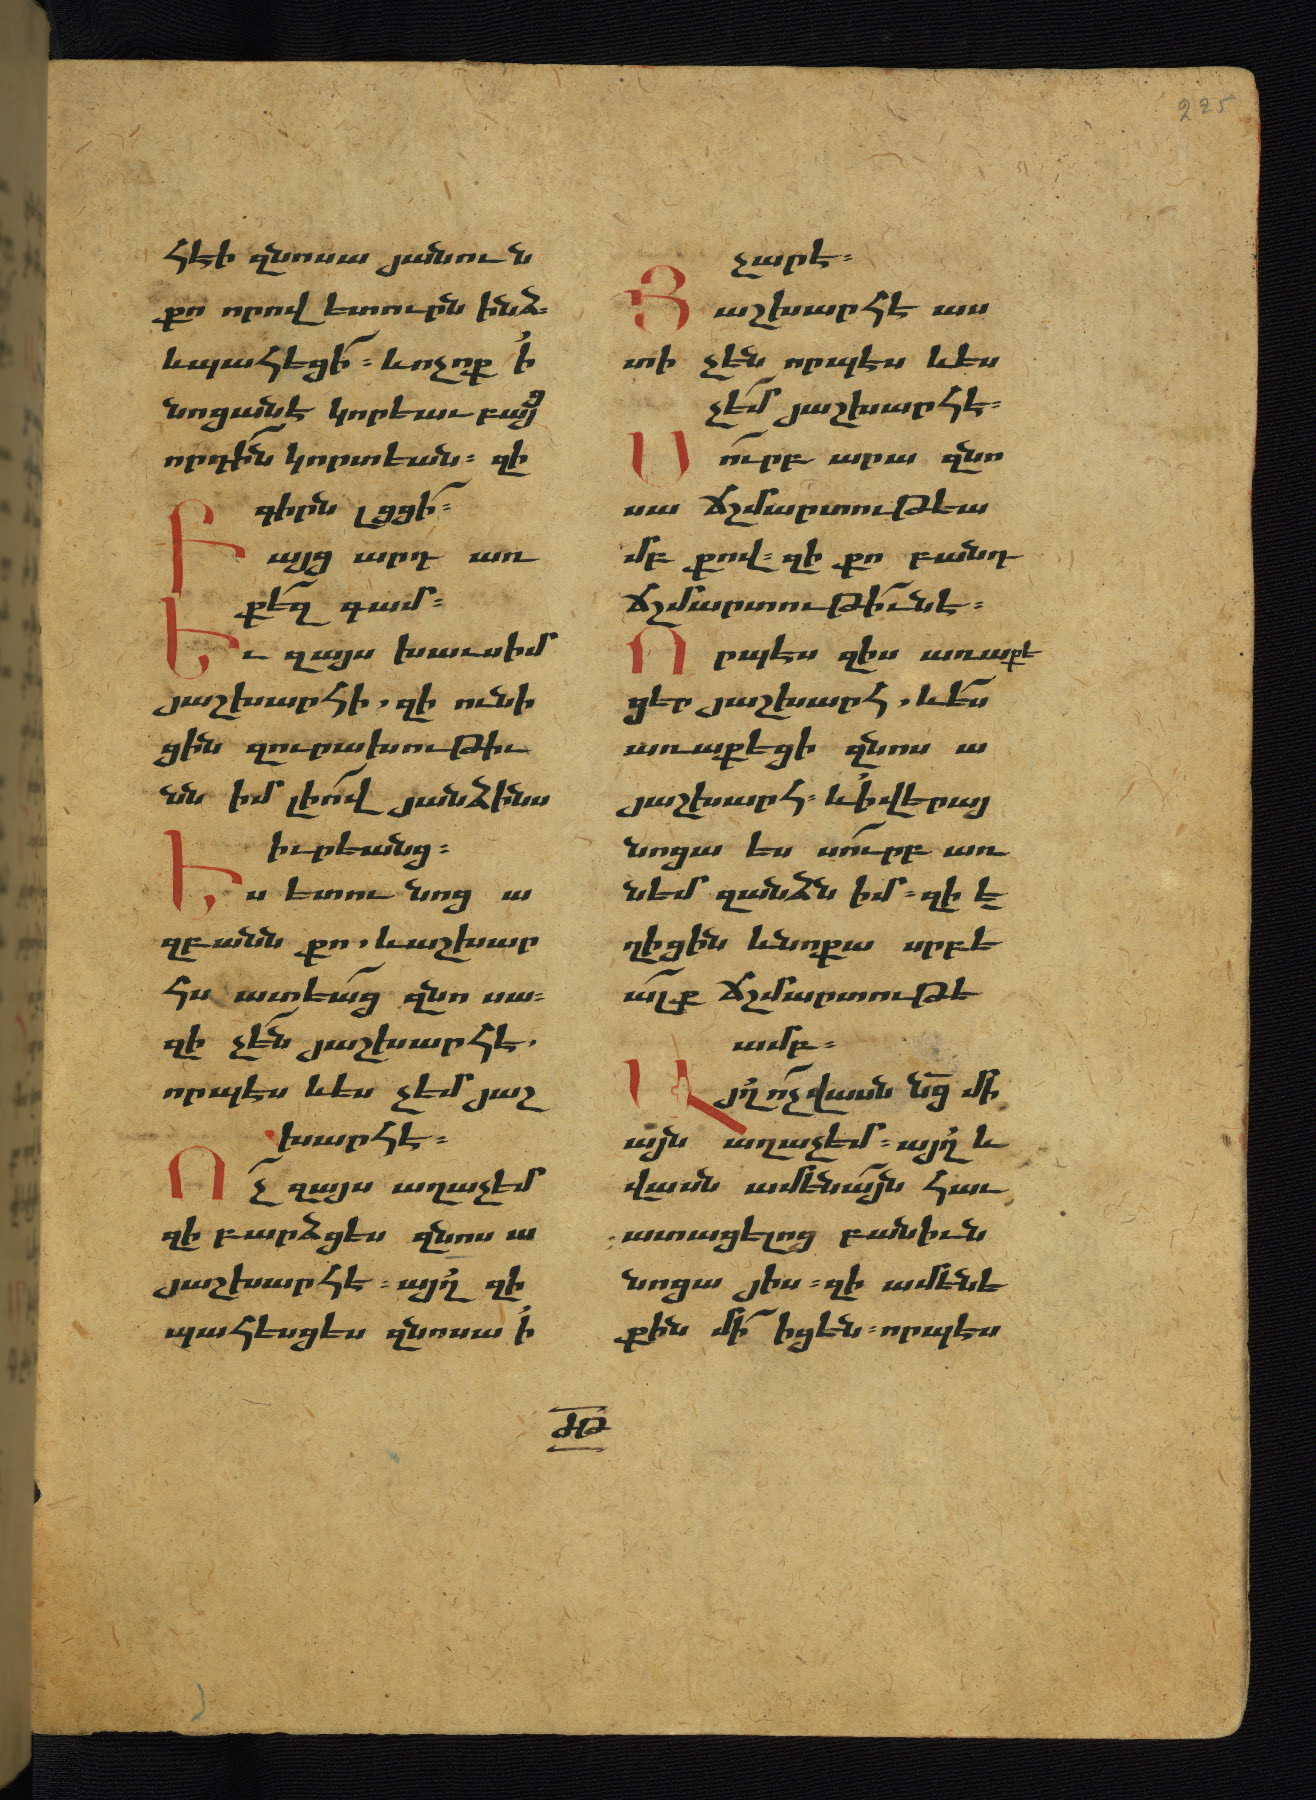 225
հէի զնոսա յանուն
քո որով ետուրն ինձ։
և պահեցի՛։ և ոչ ոք ՛ի
նոցանէ կորեաւ բայց
որդին կորստեան։ զի
գիրն լցցի՛։
Բայց արդ առ
քե՛զ գամ։
Եւ զայս խաւսիմ
յաշխարհի, զի ունի
ցին զուրախութիւ
նն իմ լիով յանձինս
իւրեանց։
Ես ետու նոց ա
զբանն քո, և աշխար
հս ատեաց զնո սա։
զի չեն յաշխարհէ,
որպէս և ես չեմ յաշ
խարհէ։
Ոչ զայս աղաչեմ
զի բարձցես զնոս ա
յաշխարհէ։ այղ զի
պահեսցես զնոսա ՛ի
չարէ։
Յաշխարհէ աս
տի չեն որպէս և ես
չեմ յաշխարհէ։
Սուրբ արա զնո
սա ճշմարտութեա
մբ քով։ զի քո բանդ
ճշմարտութի՛ւնէ։
Որպէս զիս առաքե
ցեր յաշխարհ, և ես
առաքեցի զնոս ա
յաշխարհ։ և ՛ի վերայ
նոցա ես սուրբ առ
նեմ զանձն իմ։ զի ե
ղիցին և նոքա սրբե
ալք ճշմարտութե
ամբ։
Այղ ոչ վասն նց մի
այն աղաչեմ։ այղ և
վասն ամենայն հաւ
ատացելոց բանիւն
նոցա յիս։ զի ամենե
քին մի իցեն։ որպէս
ԺԹ